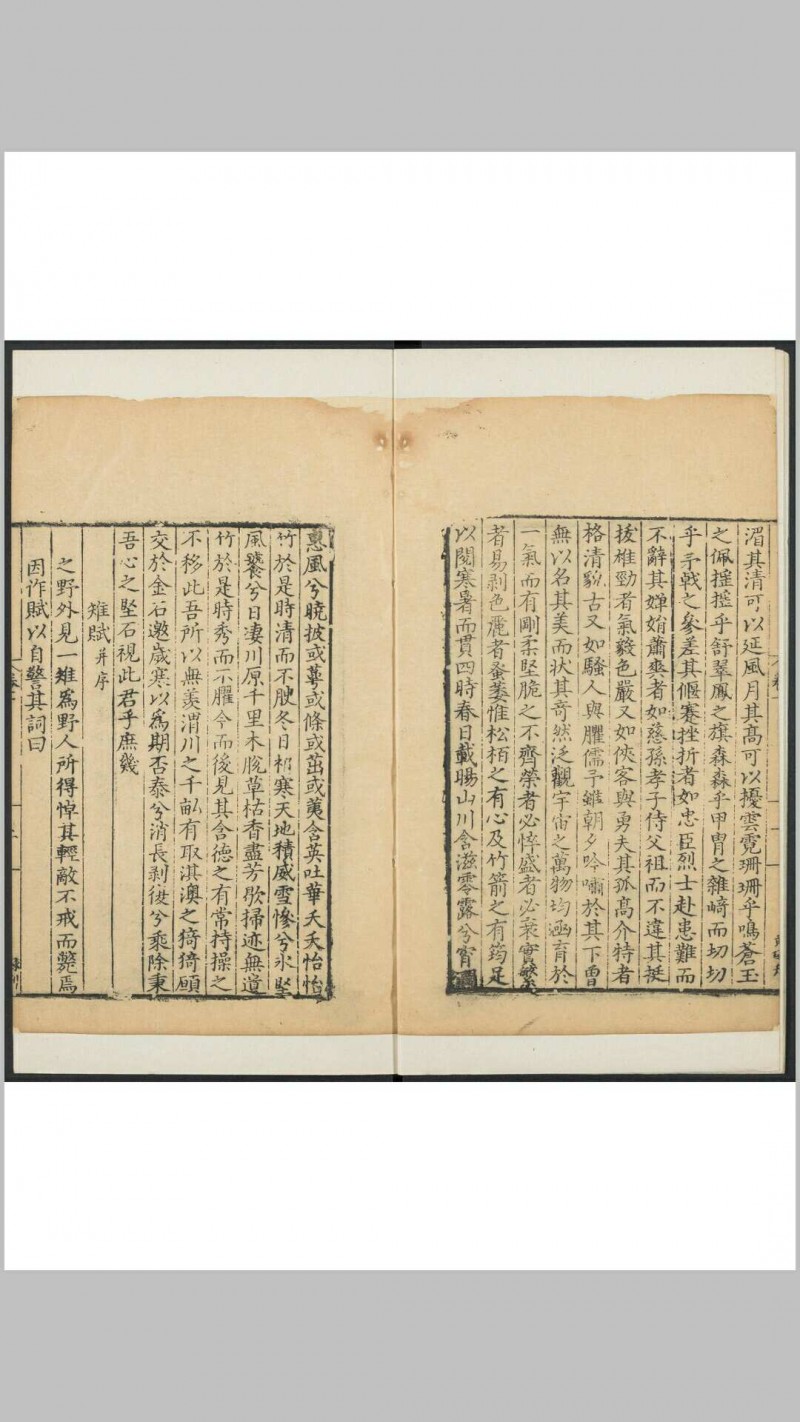 湄其清可以延風月其高可以擾雲霓珊珊乎鳴蒼玉
之佩摇摇乎舒翠鳳之旗森森乎甲冑之雜﨑而切切
乎矛戟之參差其偃蹇挫折者如忠臣烈士赴患難而
不辭其嬋娟蕭爽者如慈孫孝子侍父祖而不違其挺
拔椎勁者氣毅色嚴又如俠客與勇夫其孤高介特者
格清貌古又如騷人與臞儒予雖朝夕吟嘯於其下曾
無以名其美而状其奇然泛觀宇宙之萬物均涵育於
一氣而有剛柔堅脆之不齊榮者必悴盛者必衰實繁
者易剥色麗者蚤萎惟松栢之有心及竹箭之有筠足
以閱寒暑而貫四時春日載陽山川含滋零露兮宵
惠風兮曉披或蕚或條或茁或荑含英吐華夭夭怡怡
竹於是時清而不腴冬日祁寒天地積威雪慘兮氷堅
風饕兮日凄川原千里木脫草枯香盡芳歇掃迹無遺
竹於是時秀而不臞今而後見其含德之有常持操之
不移此吾所以無羨渭川之千畝有取淇澳之猗猗頋
交於金石邀歲寒以爲期否泰兮消長剥復兮乘除秉
吾心之堅石視此君乎庶幾
雉賦并序
之野外見一雉爲野人所得悼其輕敵不戒而斃焉
因作賦以自警其詞曰